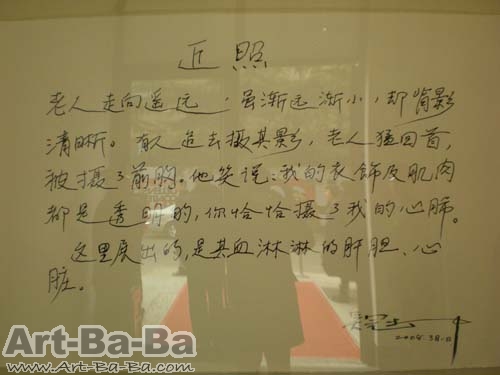 近照
老人走向遥远，虽渐远渐小，却背影
清晰。有人追去摄其影，老人猛回首，
被摄了前胸，他笑说：我的衣饰及肌肉
都是透明的，你恰恰摄了我的心肺。
这里展出的，是其血淋淋的肝胆、心
脏。
2008.
Art-Ba-Ba
www.Art-Ba-Ba.com